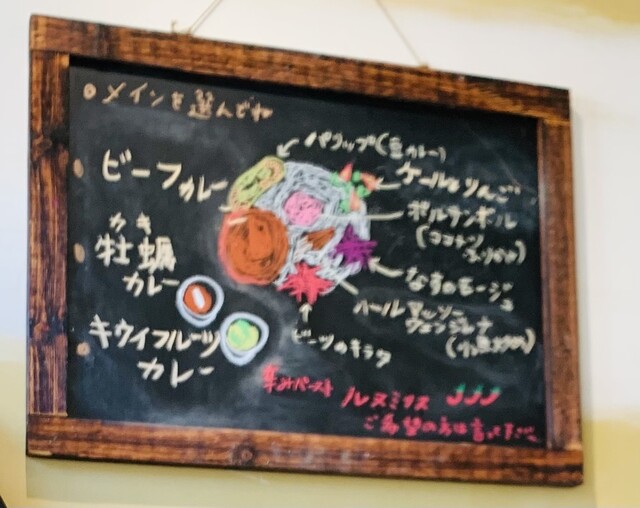 メインを選んでね
ビーフカレー
カキ
牡蠣
カレー
キウイフルーツ
カレー
パリップ(豆カレー)
ケールとりんご
ポルサンボル
(ココナツ
ふりかけ)
なすのモージュ
ハールマッソー
ビーツのキラタ
辛みペースト ルヌミリス
ご希望の方は言って下さい